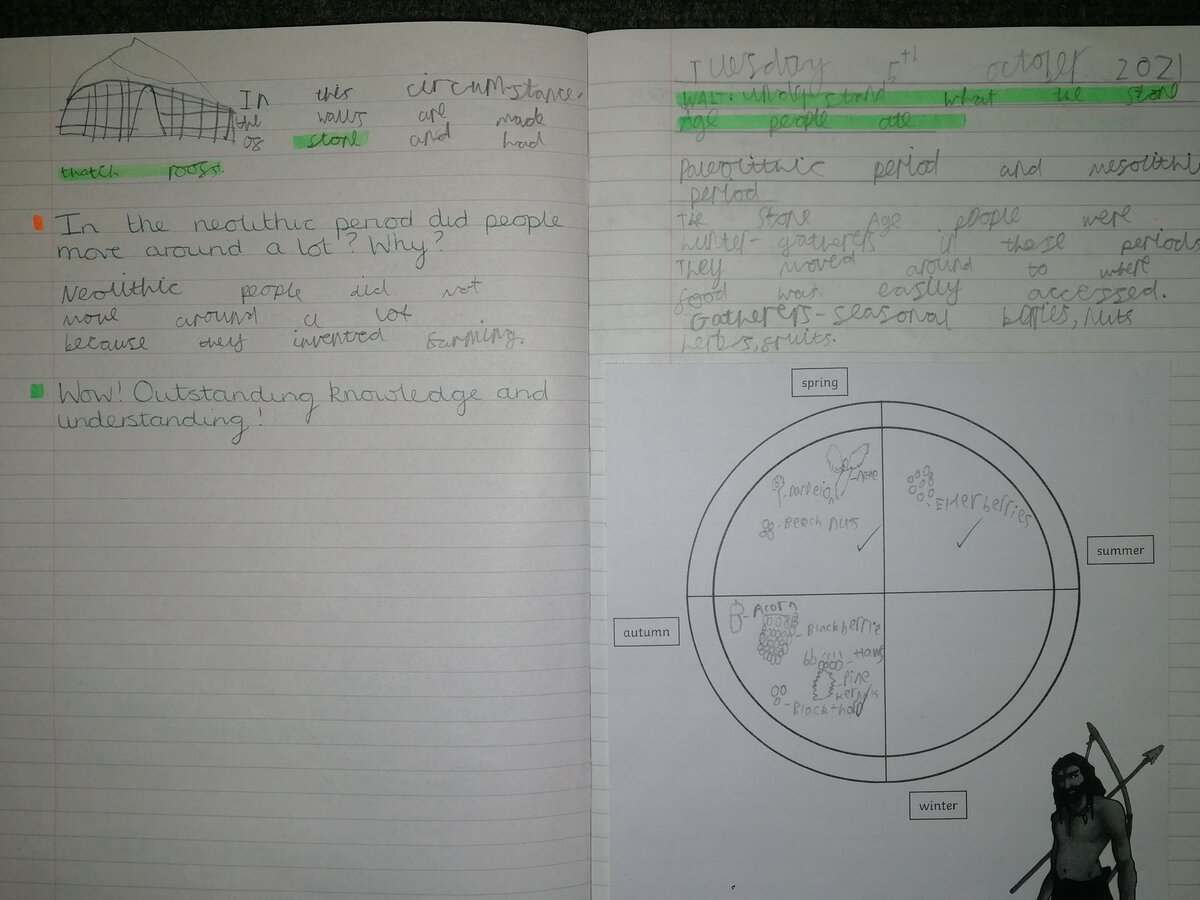 In this circumstance.
the walls are made
og stone and had
thatch roogs.
In the neolithic period did people
move around a lot? Why?
Neolithic people did not
move around a lot
because they invented garming.
Wow! Outstanding knowledge and
understanding!
Tuesday 5th october 2021
WALT: understand what the stone
Age people ate
Paleolithic period and mesolithic
period
The Stone Age people were
hunter-gatherers in these periods
They moved around to where
food was easily accessed.
Gatherers-seasonal berries, nuts
herbs, gruits.
spring
Nettle
Dandelion
Beech Nuts
Elderberries
summer
autumn
Acorn
Blackberrie
Haws
Pine
kernals
winter